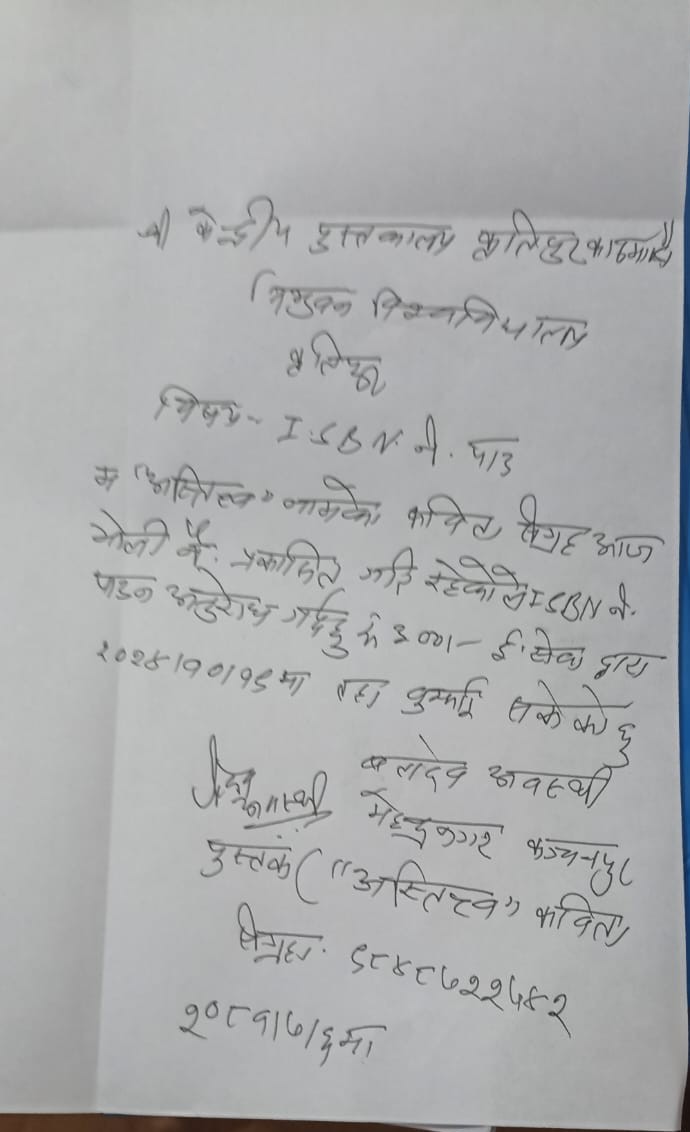 श्री केन्द्रीय पुस्तकालय कृतिपुर काठमाडौं
त्रिभुवन विश्वविद्यालय
कृतिपुर
विषय- I.SBN. नं. पाउ
म "अस्तित्व" नामको कविता संग्रह आज
भोली नै प्रकासित गरि रहेकोले ISBN नं.
पाउन अनुरोध गर्दछु रु ३००।- ई.सेवा द्वारा
२०२४।१०।१६ मा तहा बुझाई सकेको छु
बलदेव अवस्थी
अवस्थी महेन्द्रनगर कञ्चनपुर
पुस्तक ("अस्तित्व" कविता
संग्रह. ९८४८७२२५४२
२०८१।७।६ मा